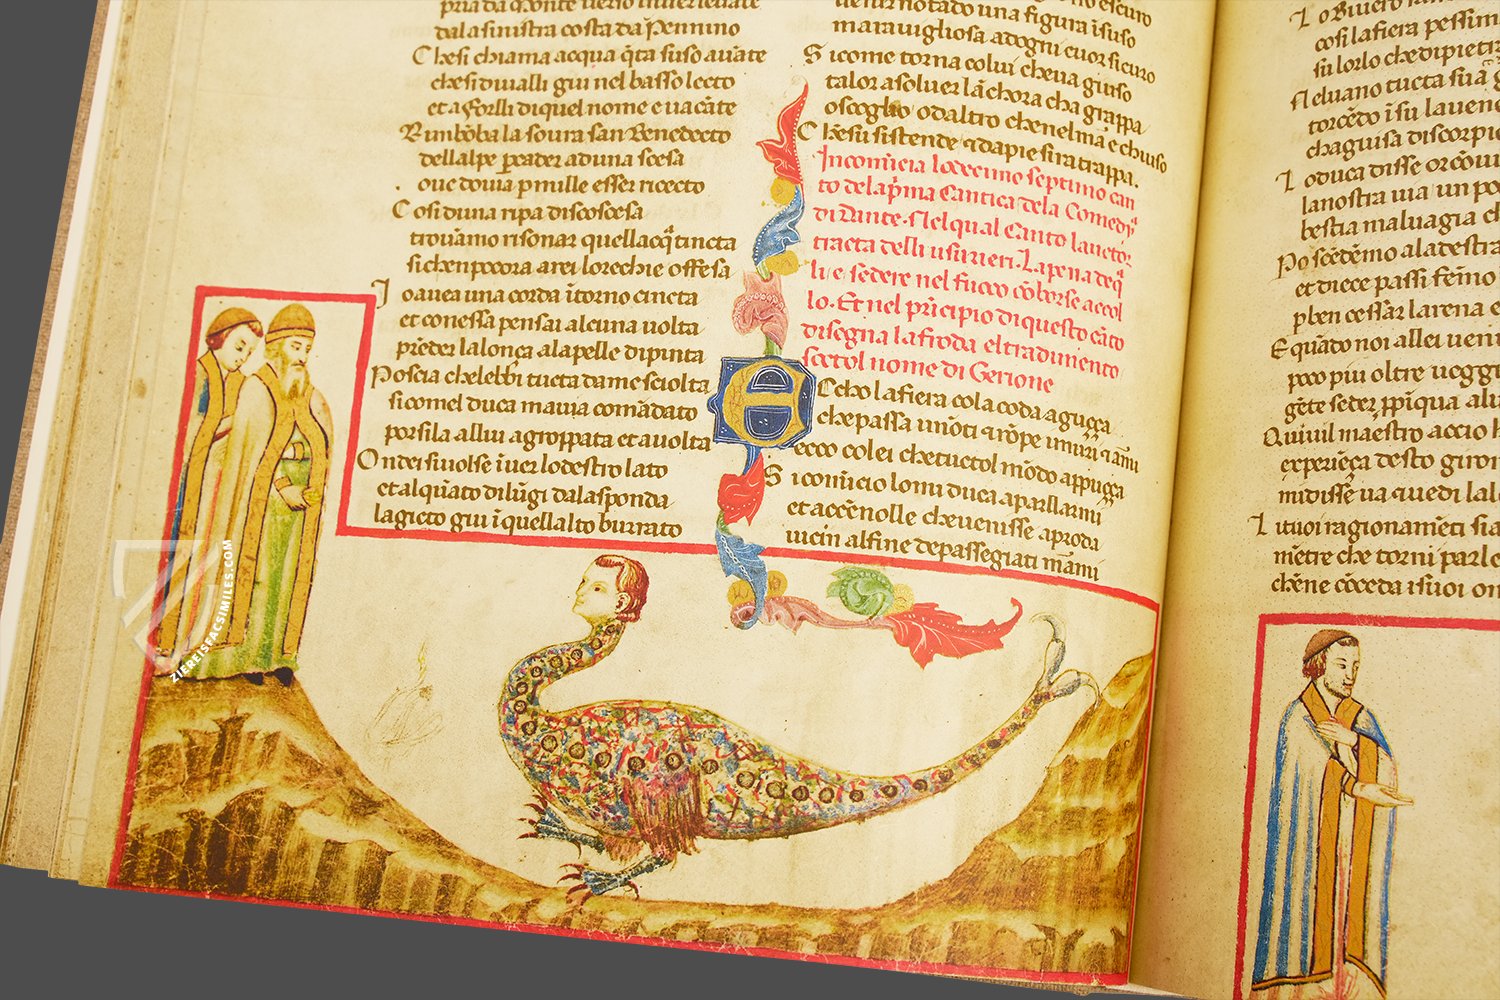 pria da monte ueso inuer leuate
dala sinistra costa da Pennino
Chesi chiama acqua q̄ta suso auāte
chesi diualli giu nel basso lecto
et a Forlli di quel nome e uacāte
Rimbōba la soura san Benedecto
dellalpe per cader ad una scesa
oue douia p mille esser ricecto
Cosi diuna ripa discoscesa
trouāmo risonar quellacq̄ tincta
si chenpocora arei lorechie offesa
Io auea una corda ītorno cincta
et con essa pensai alcuna uolta
prēder la lonça a la pelle dipinta
Poscia chelebbi tucta da me sciolta
si comel duca mauia comādato
porsila allui agroppata et auolta
Ondei si uolse īuer lo destro lato
et alquāto di lūgi da la sponda
la gicto giu ī quellalto burrato
notado una figura īsuso
marauigliosa adogni cuor sicuro
Sicome torna colui che ua giuso
talor a soluer lāchora cha grappa
o scoglio od altro che nel mar e chiuso
Chesu sistende & da pie si ratrappa.
Incomīcia lo decimo septimo can
to de la p̄ma Cantica de la Comedy
di Dante. Nel qual Canto lauctor
tracta delli usurieri. La pena de q̄
li e sedere nel fuoco cō borse a col
lo. Et nel prīcipio di questo cāto
disegna la froda el tradimento
socto l nome di Gerione
Eccho la fiera cola coda aguçça
che passa u mōti & rōpe i muri & armi
ecco colei che tuctol mōdo appuçça
Si comīcio lo mi duca a parllarmi
et accēnolle che uenisse a proda
uicin al fine de passegiati marmi
Lo
cosi la fiera pessim
su lorlo che di pietr
Nel uano tucta sua
torcēdo ī su la uene
cha guisa di scorpio
Lo duca disse or cōuie
la nostra uia un po
bestia maluagia ch
Po scēdēmo a la destra
et diece passi femō
pben cessar la rena e
E quādo noi allei ueni
poco piu oltre ueggi
gēte seder ppīqua al
Quiuil maestro accio
experiēça desto giron
mi disse ua & uedi la l
Li tuoi ragionamēti sia
mētre che torni parle
chēne cōceda i suoi om
ZIEREISFACSIMILES.COM